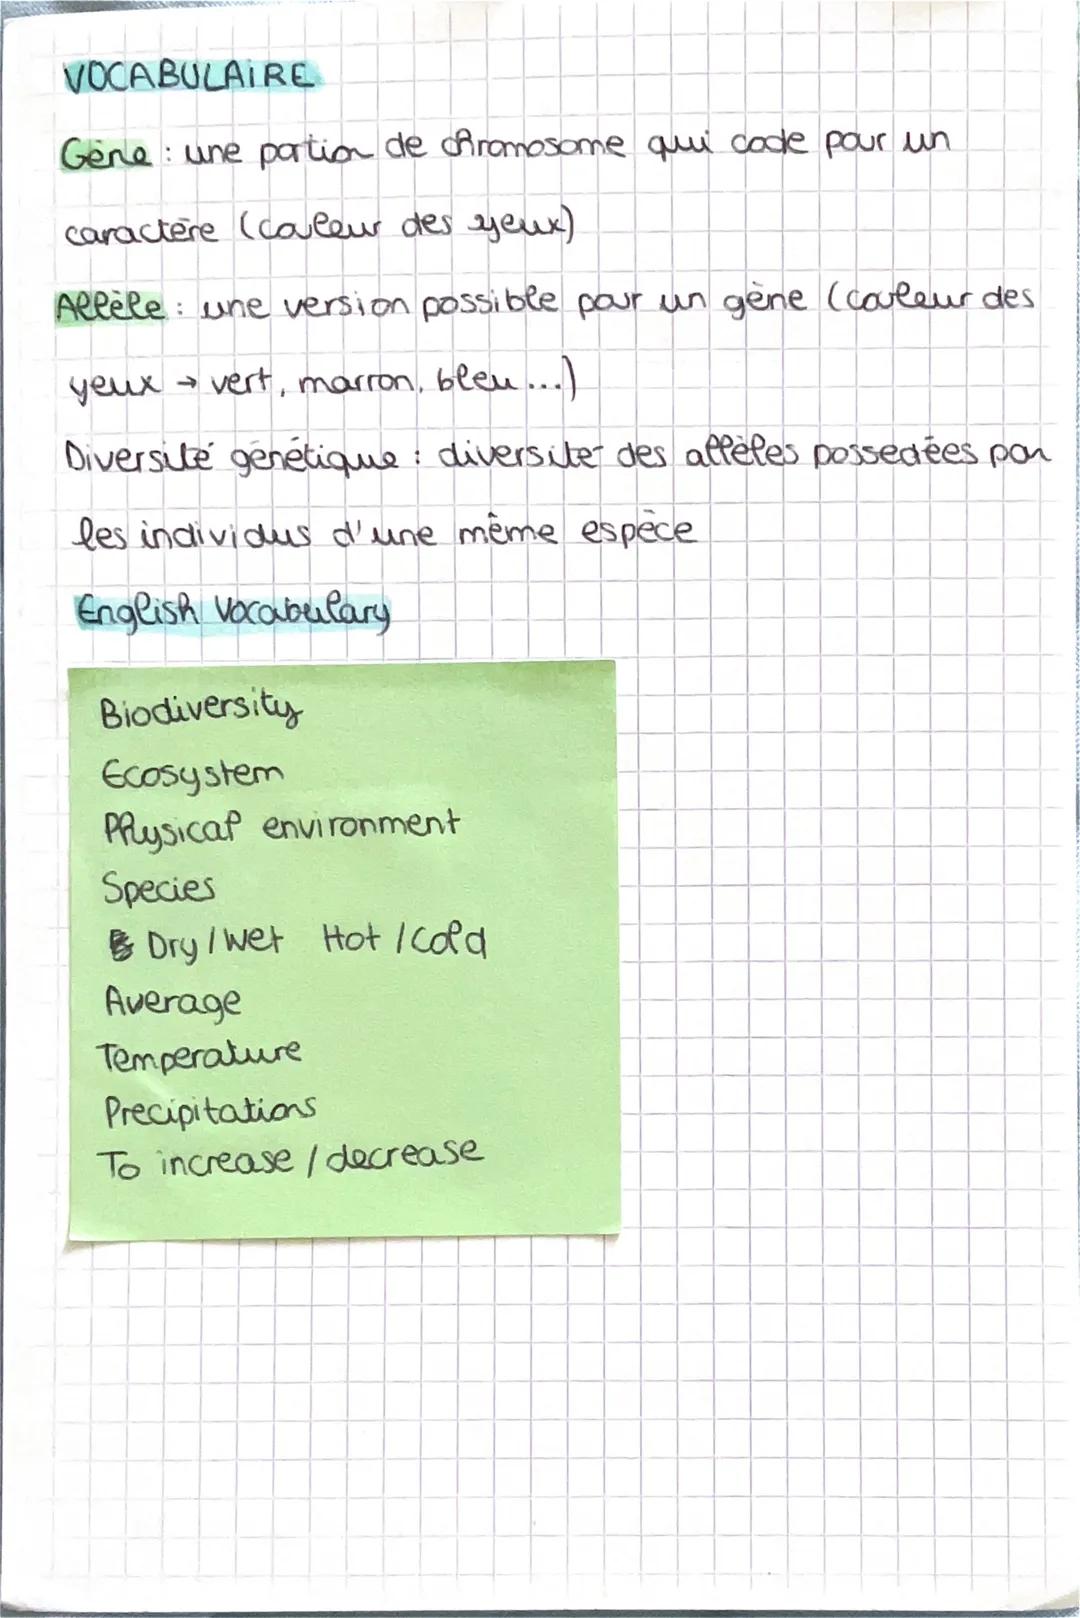 VOCABULAIRE
Gène : une portion de chromosome qui code pour un
caractère (couleur des yeux)
Allèle : une version possible pour un gène (couleur des
yeux → vert, marron, bleu ...)
Diversité génétique : diversiter des allèles possedées par
les individus d'une même espèce
English Vocabulary
Biodiversity
Ecosystem
Physical environment
Species
Dry / Wet Hot / Cold
Average
Temperature
Precipitations
To increase / decrease